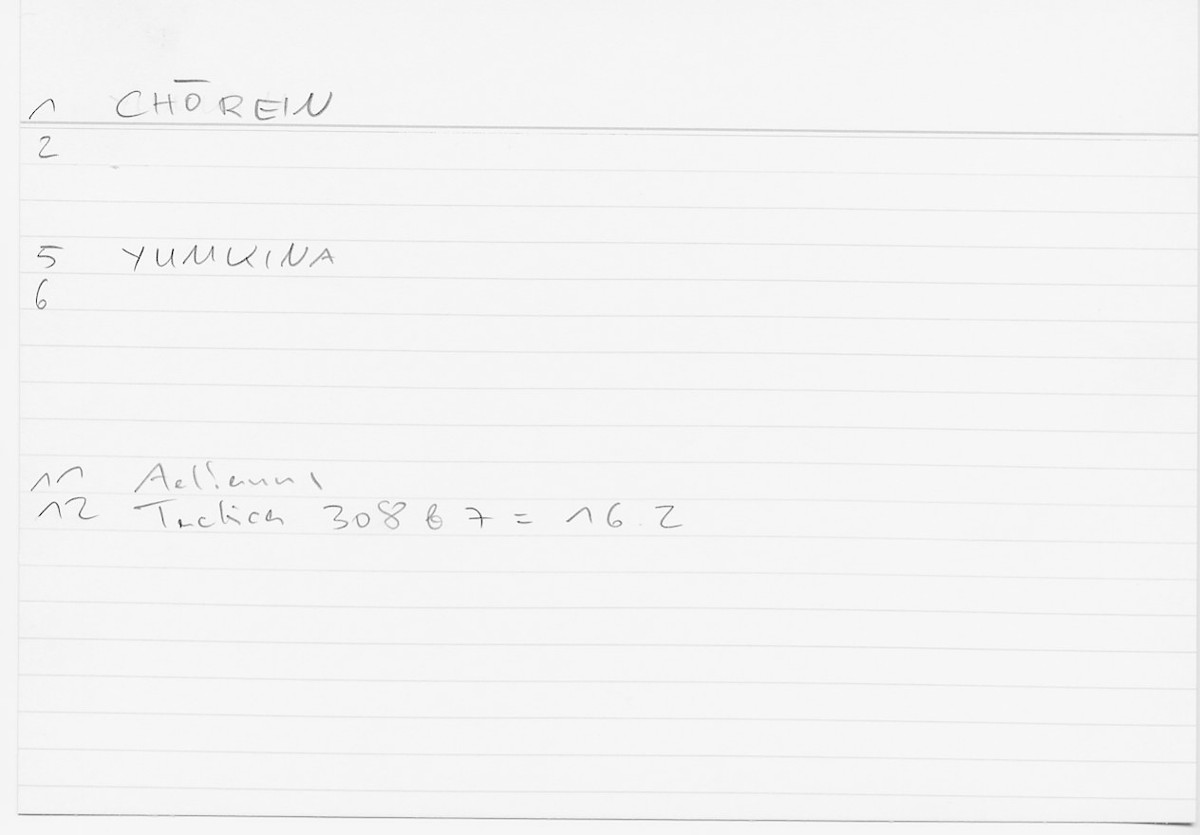 1 CHŌREIN
2
5 YUMKINA
6
11 Aelianus
12 Tactica 308 b 7 = 16.2